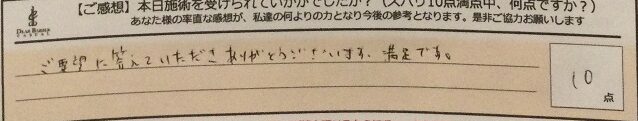 【ご感想】本日施術を受けられていかがでしたか?(ズバリ10点満点中、何点ですか?)
あなた様の率直な感想が、私達の何よりの力となり今後の参考となります。是非ご協力お願いします
DEAR BARBER
ご要望に答えていただきありがとうございます、満足です。
10
点